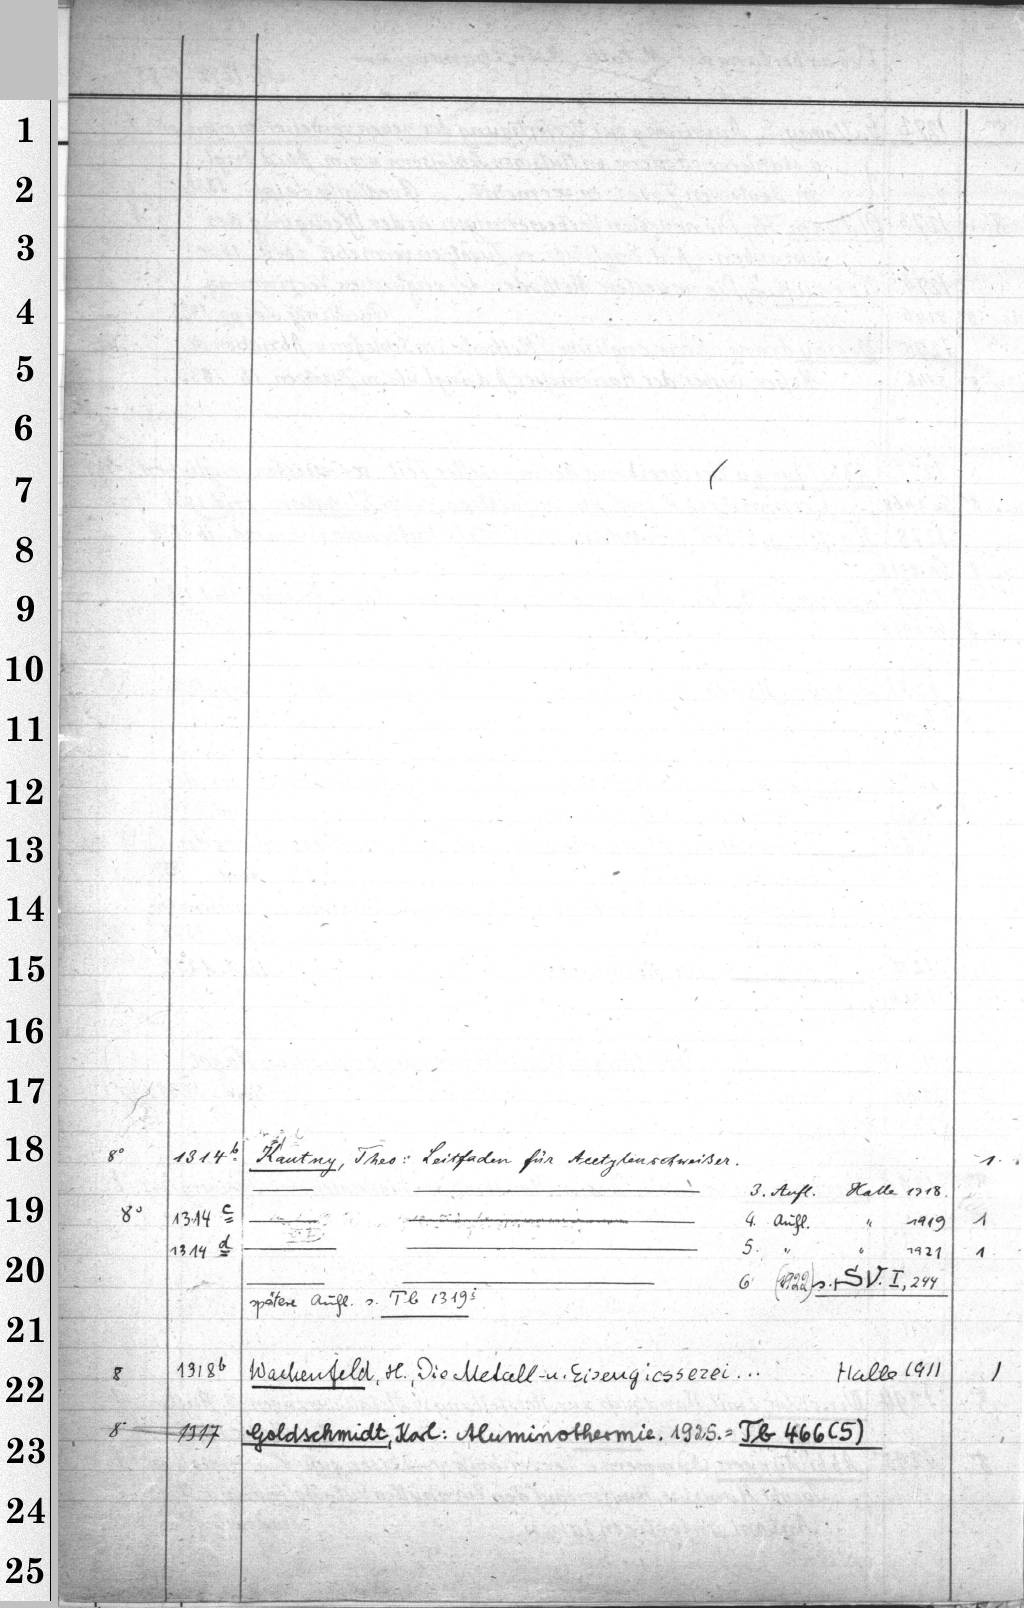 1
2
3
4
5
6
7
8
9
10
11
12
13
14
15
16
17
18
19
20
21
22
23
24
25
8° 1314b Kautny, Theo: Leitfaden für Acetylenschweißer. 1.
3. Aufl. Halle 1918.
8° 1314c 4. Aufl. " 1919 1
1314d 5. " " 1921 1.
6 (1922) s. SV. I, 244
spätere Aufl. s. Tb 1319i
8 1318b Wachenfeld, H., Die Metall- u. Eisengiesserei... Halle 1911 1
8 1317 Goldschmidt, Karl: Aluminothermie. 1925. = Tb 466(5)